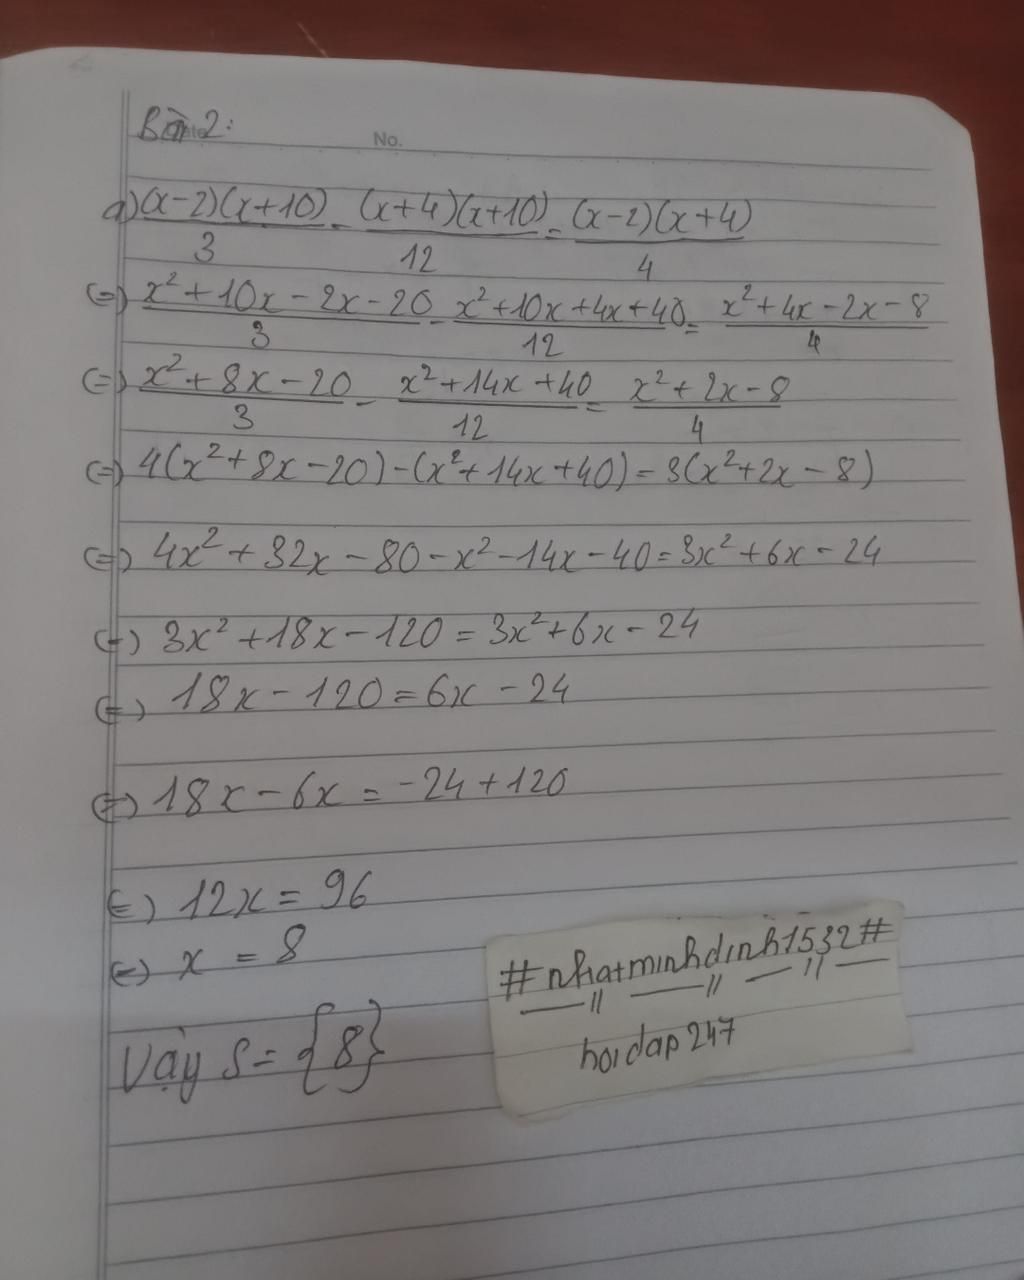 Bài 2:
No.
a) (x-2)(x+10)/3 - (x+4)(x+10)/12 = (x-2)(x+4)/4
(=) x²+10x-2x-20/3 - x²+10x+4x+40/12 = x²+4x-2x-8/4
(=) x²+8x-20/3 - x²+14x+40/12 = x²+2x-8/4
(=) 4(x²+8x-20)-(x²+14x+40)=3(x²+2x-8)
(=) 4x²+32x-80-x²-14x-40=3x²+6x-24
(=) 3x²+18x-120=3x²+6x-24
(=) 18x-120=6x-24
(=) 18x-6x=-24+120
(=) 12x=96
(=) x=8
Vậy S={8}
#nhatminhdinh1532#
hoidap247